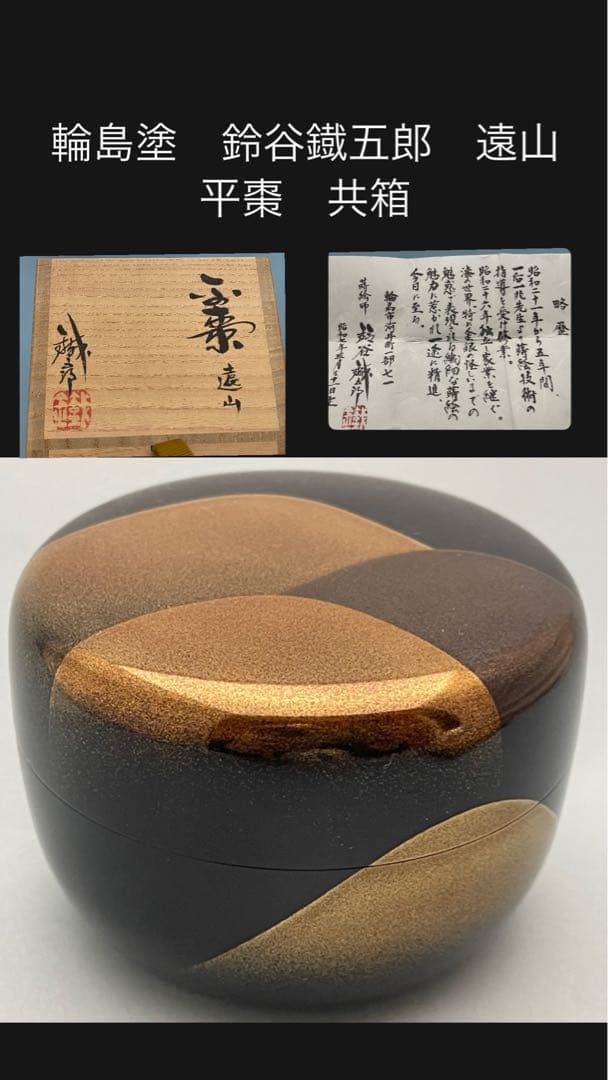 輪島塗　鈴谷鐵五郎　遠山
平棗　共箱
平棗
遠山
略歴
昭和二十一年から五年間、
一后一兆先生より蒔絵技術の
指導を受け修業。
昭和二十六年独立し家業を継ぐ。
漆の世界、特に金銀の怪しいまでの
魅惑で表現される繊細な蒔絵の
魅力に惹かれ一途に精進、
今日に至る。
輪島市河井町一部七一
蒔絵師　鈴谷鐵五郎